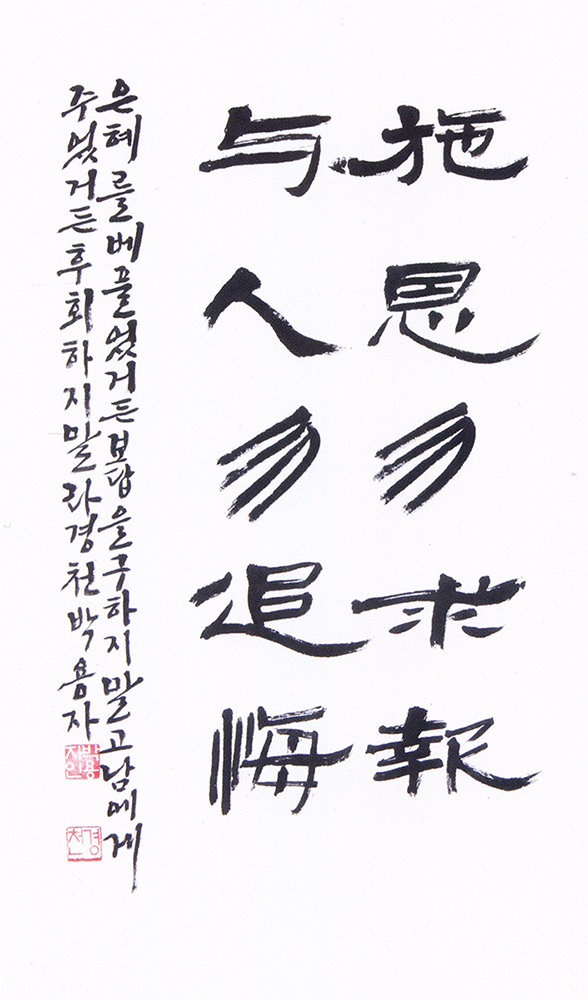 施恩勿求報
与人勿追悔
은혜를베풀었거든보답을구하지말고남에게
주었거든후회하지말라경천박용자
박용자
경천